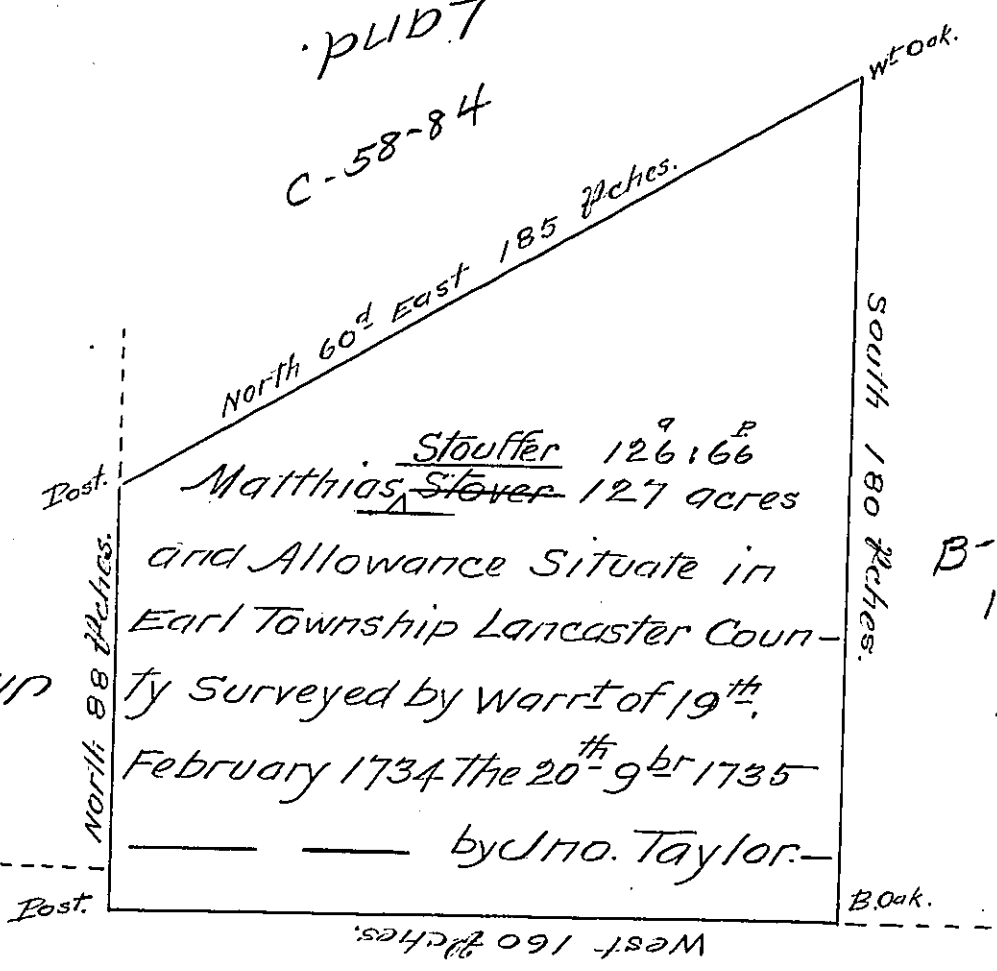 Land.
C-58-84
Wt Oak.
North 60d East 185 Pches.
South 180 Pches.
Post.
Stouffer 126a:66p
Matthias Stover 127 acres
and Allowance Situate in
Earl Township Lancaster Coun-
ty Surveyed by Warrt of 19th.
February 1734 The 20th 9br 1735
by Jno. Taylor.
North 88 Pches.
B-
1
Post.
B.Oak.
West 160 Pches.